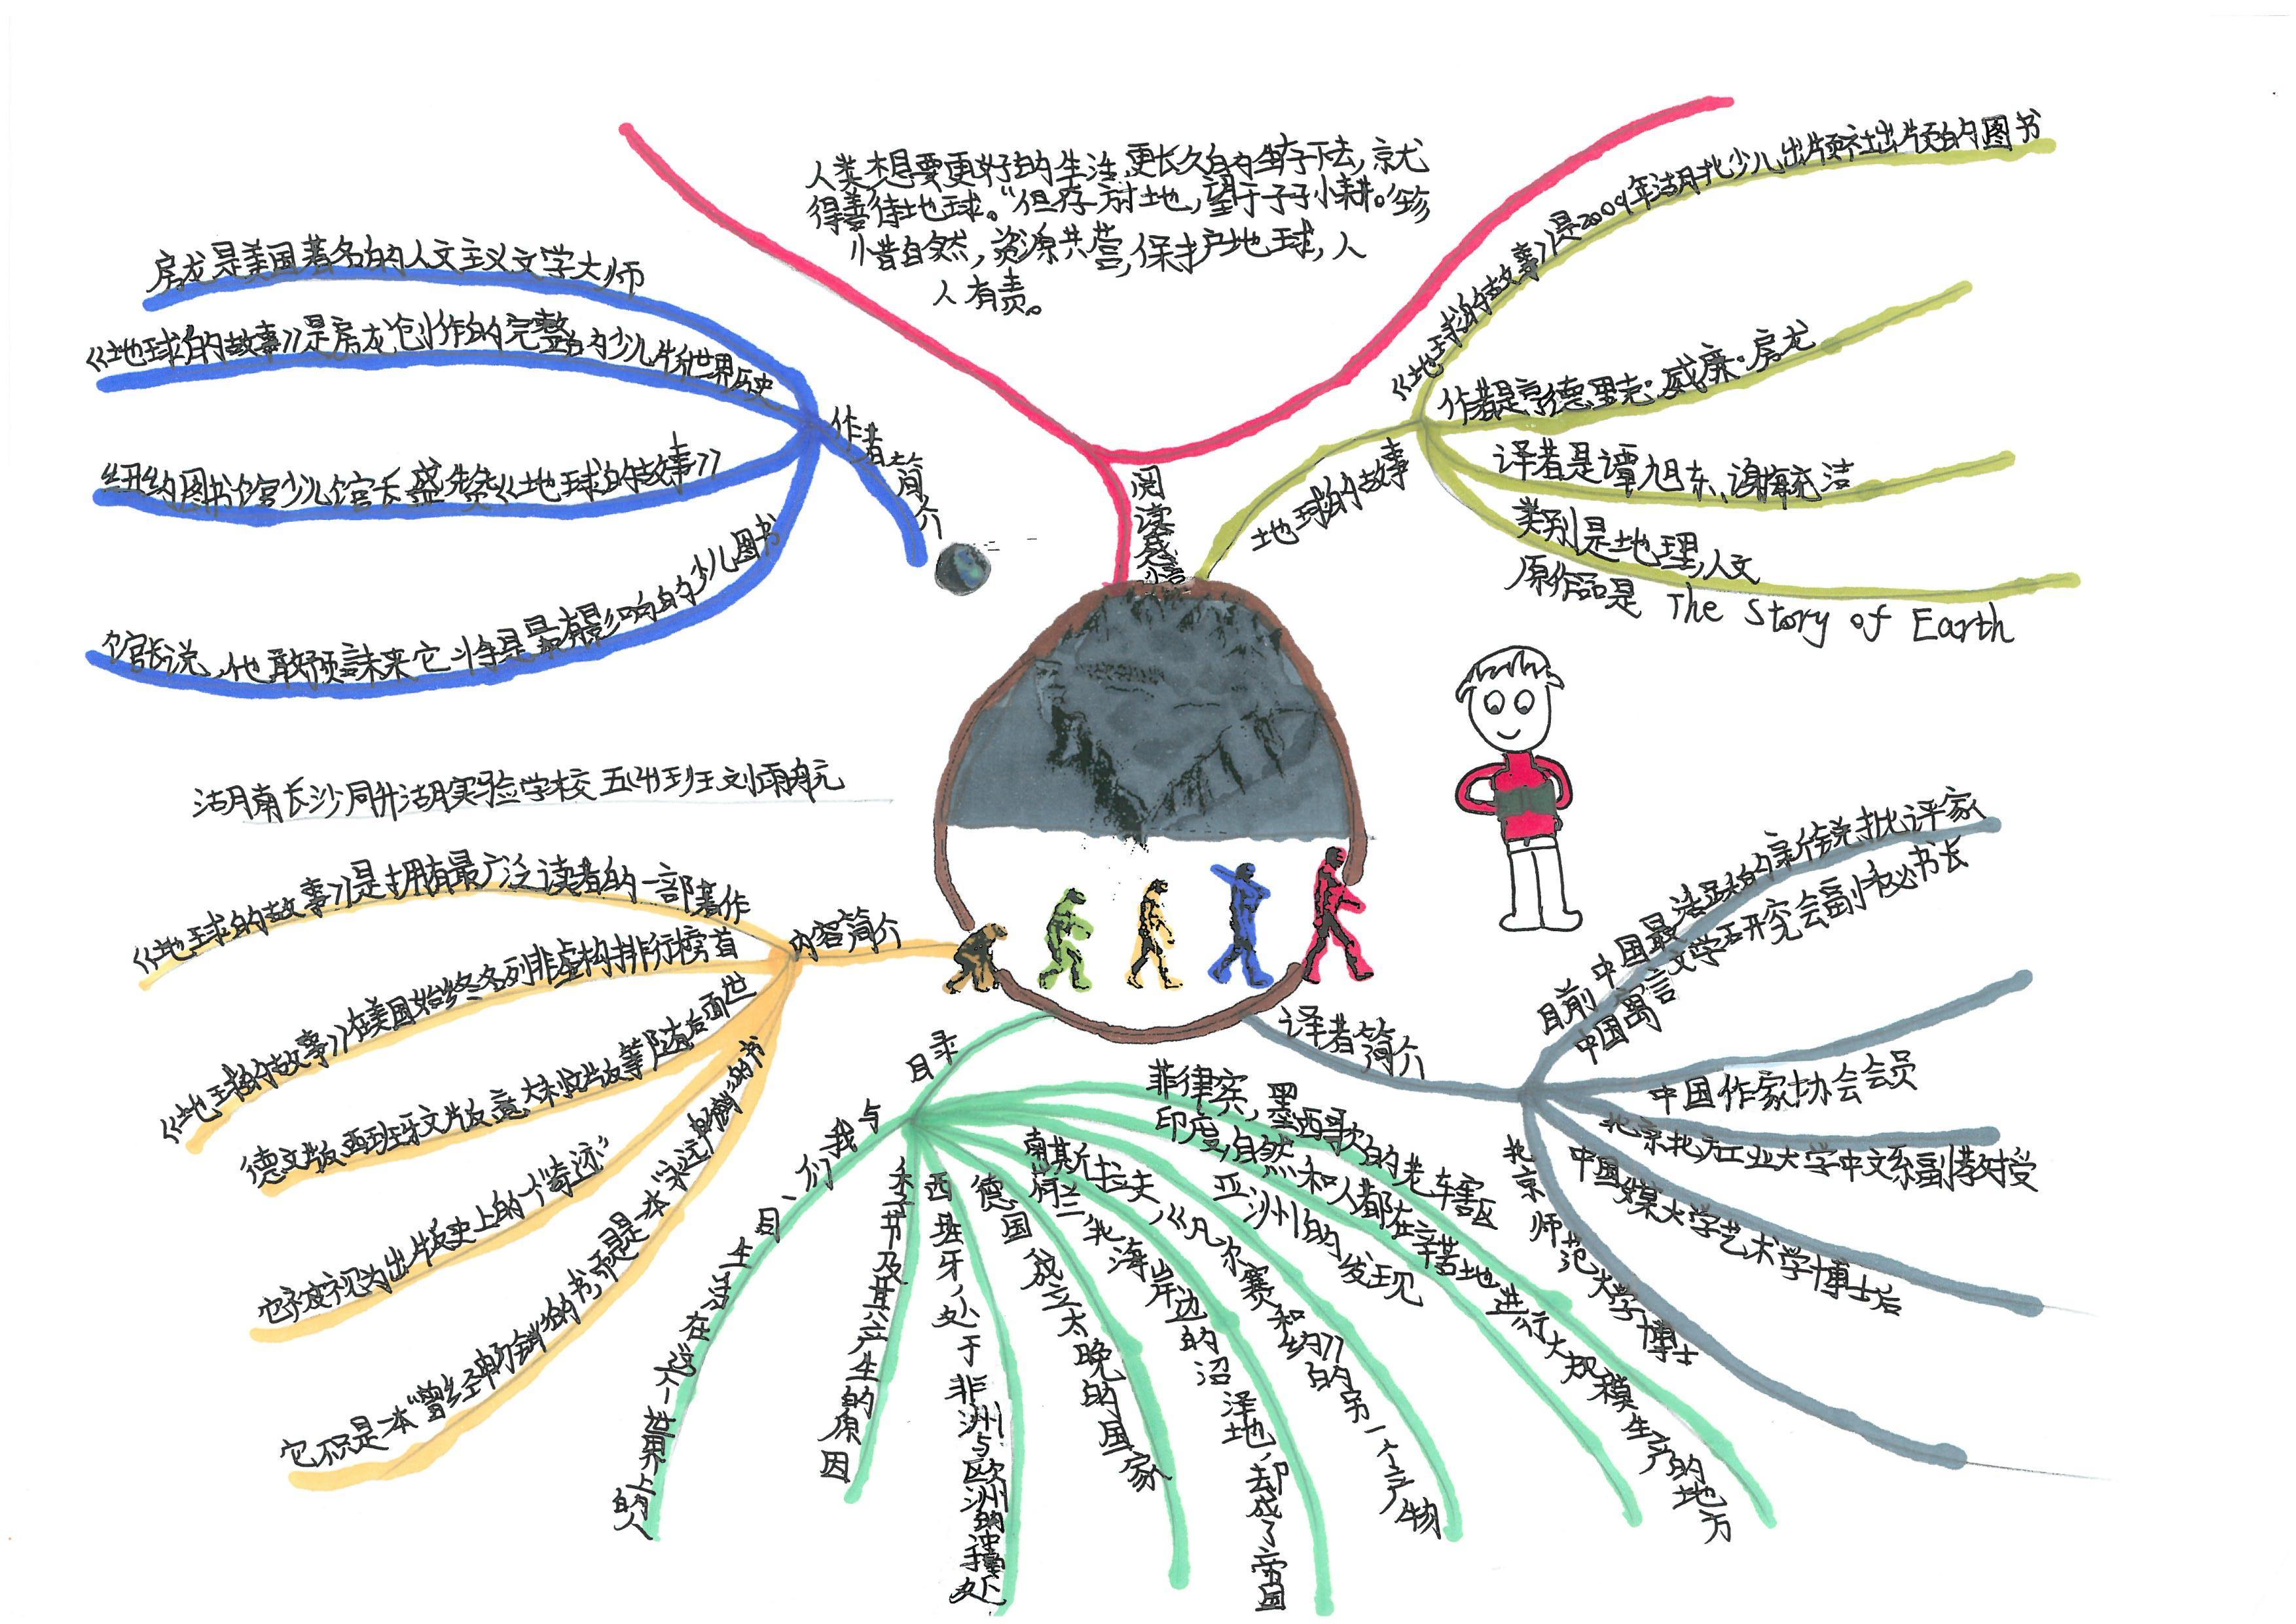 人类想要更好的生活,更长久的生存下去,就
得善待地球。“但存方寸地,留于子孙耕。”珍
惜自然,资源共营,保护地球,人
人有责。
阅读感悟
作者简介
房龙是美国著名的人文主义文学大师
《地球的故事》是房龙创作的完整的少儿版世界历史
纽约图书馆少儿馆长盛赞《地球的故事》
馆长说,他敢预言未来它将是最有影响的少儿图书
地球的故事
《地球的故事》是2009年湖北少儿出版社出版的图书
作者是亨德里克·威廉·房龙
译者是谭旭东、谢毓洁
类别是地理,人文
原作品是 The Story of Earth
湖南长沙同升湖实验学校 五(4)班 刘雨航
内容简介
《地球的故事》是拥有最广泛读者的一部著作
《地球的故事》在美国始终名列非虚构排行榜首
德文版西班牙文版意大利文版等随后面世
它被视为出版史上的一个“奇迹”
它不只是一本“曾经畅销”的书,而是一本“永远畅销”的书
目录
我们与生活在这个世界上的人
季节及其产生的原因
西班牙,处于非洲与欧洲的冲撞处
德国成立太晚的国家
荷兰,北海岸边的沼泽地,却成了帝国
南斯拉夫,《凡尔赛和约》的另一个产物
亚洲的发现
印度,自然和人都在辛苦地进行大规模生产的地方
菲律宾,墨西哥的老辖区
译者简介
目前中国最活跃的新锐批评家
中国寓言文学研究会副秘书长
中国作家协会会员
北京北方工业大学中文系副教授
中国传媒大学艺术学博士后
北京师范大学博士